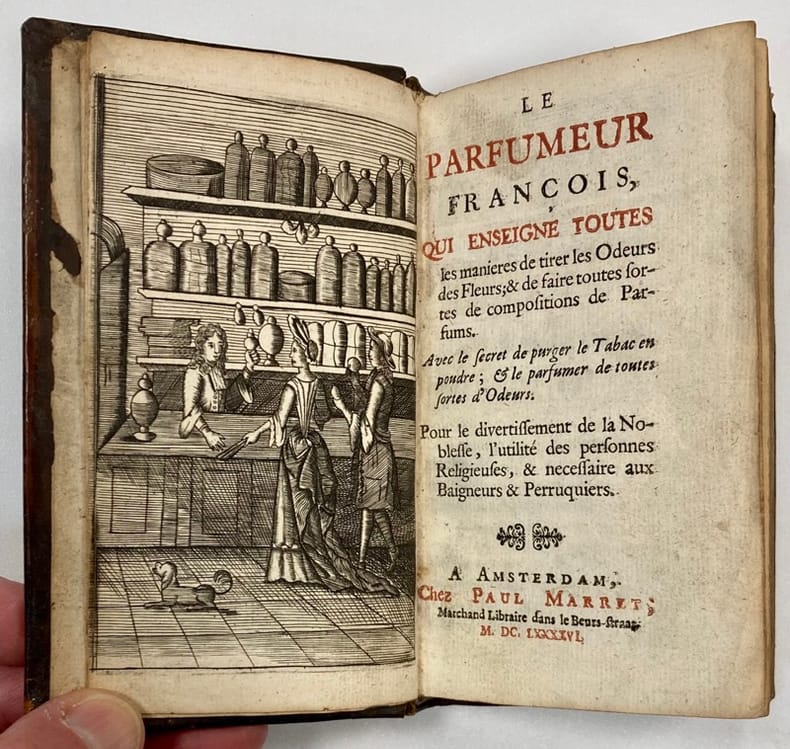 LE
PARFUMEUR
FRANÇOIS,
QUI ENSEIGNE TOUTES
les manieres de tirer les Odeurs
des Fleurs; & de faire toutes ſor-
tes de compoſitions de Par-
fums.
Avec le ſecret de purger le Tabac en
poudre; & le parfumer de toutes
ſortes d'Odeurs.
Pour le divertiſſement de la No-
bleſſe, l'utilité des perſonnes
Religieuſes, & neceſſaire aux
Baigneurs & Perruquiers.
A AMSTERDAM,
Chez PAUL MARRET,
Marchand Libraire dans le Beurs-ſtraat,
M. DC. LXXXXVI.